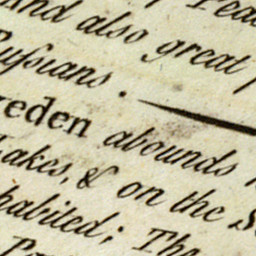 and also great
Ruſsians. —
reden abounds
Lakes, & on the
habited; The